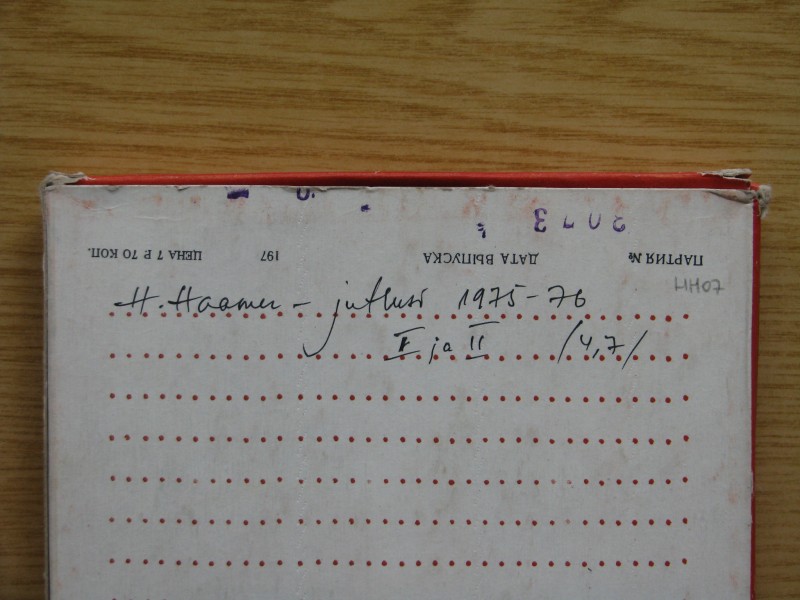 ПАРТИЯ № ДАТА ВЫПУСКА 197 ЦЕНА 7 Р. 70 КОП.
HH07
H. Haamer – jutlusi 1975-76
I ja II /4,7/